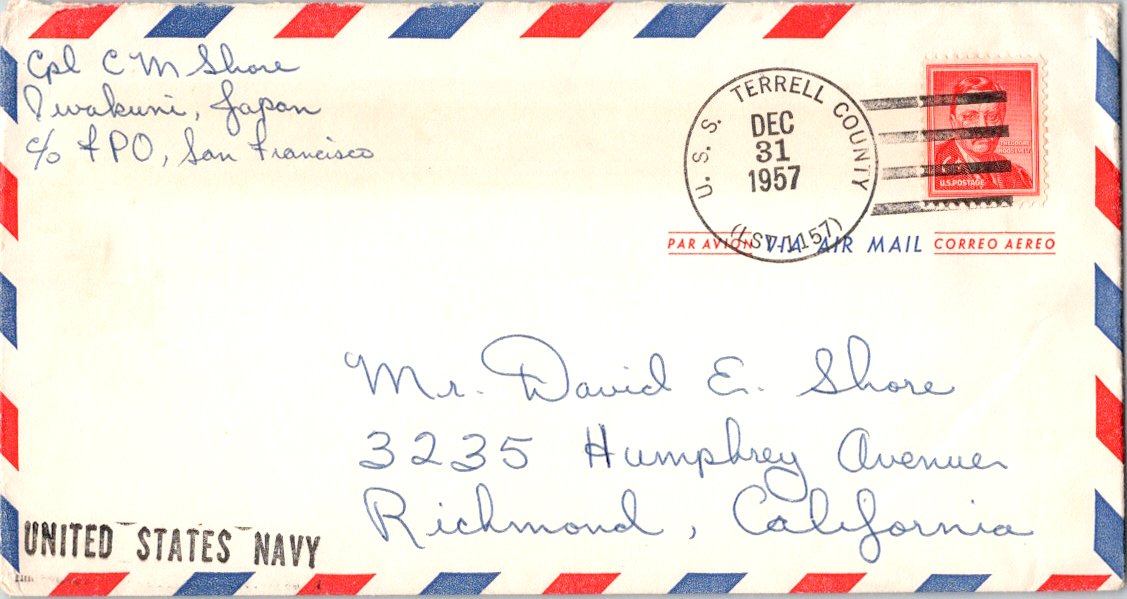 Cpl C M Shore
Iwakuni, Japan
c/o FPO, San Francisco
U. S. S. TERRELL COUNTY
DEC
31
1957
(LST 1157)
THEODORE
ROOSEVELT
U.S. POSTAGE
PAR AVION VIA AIR MAIL CORREO AEREO
Mr. David E. Shore
3235 Humphrey Avenue
Richmond, California
UNITED STATES NAVY